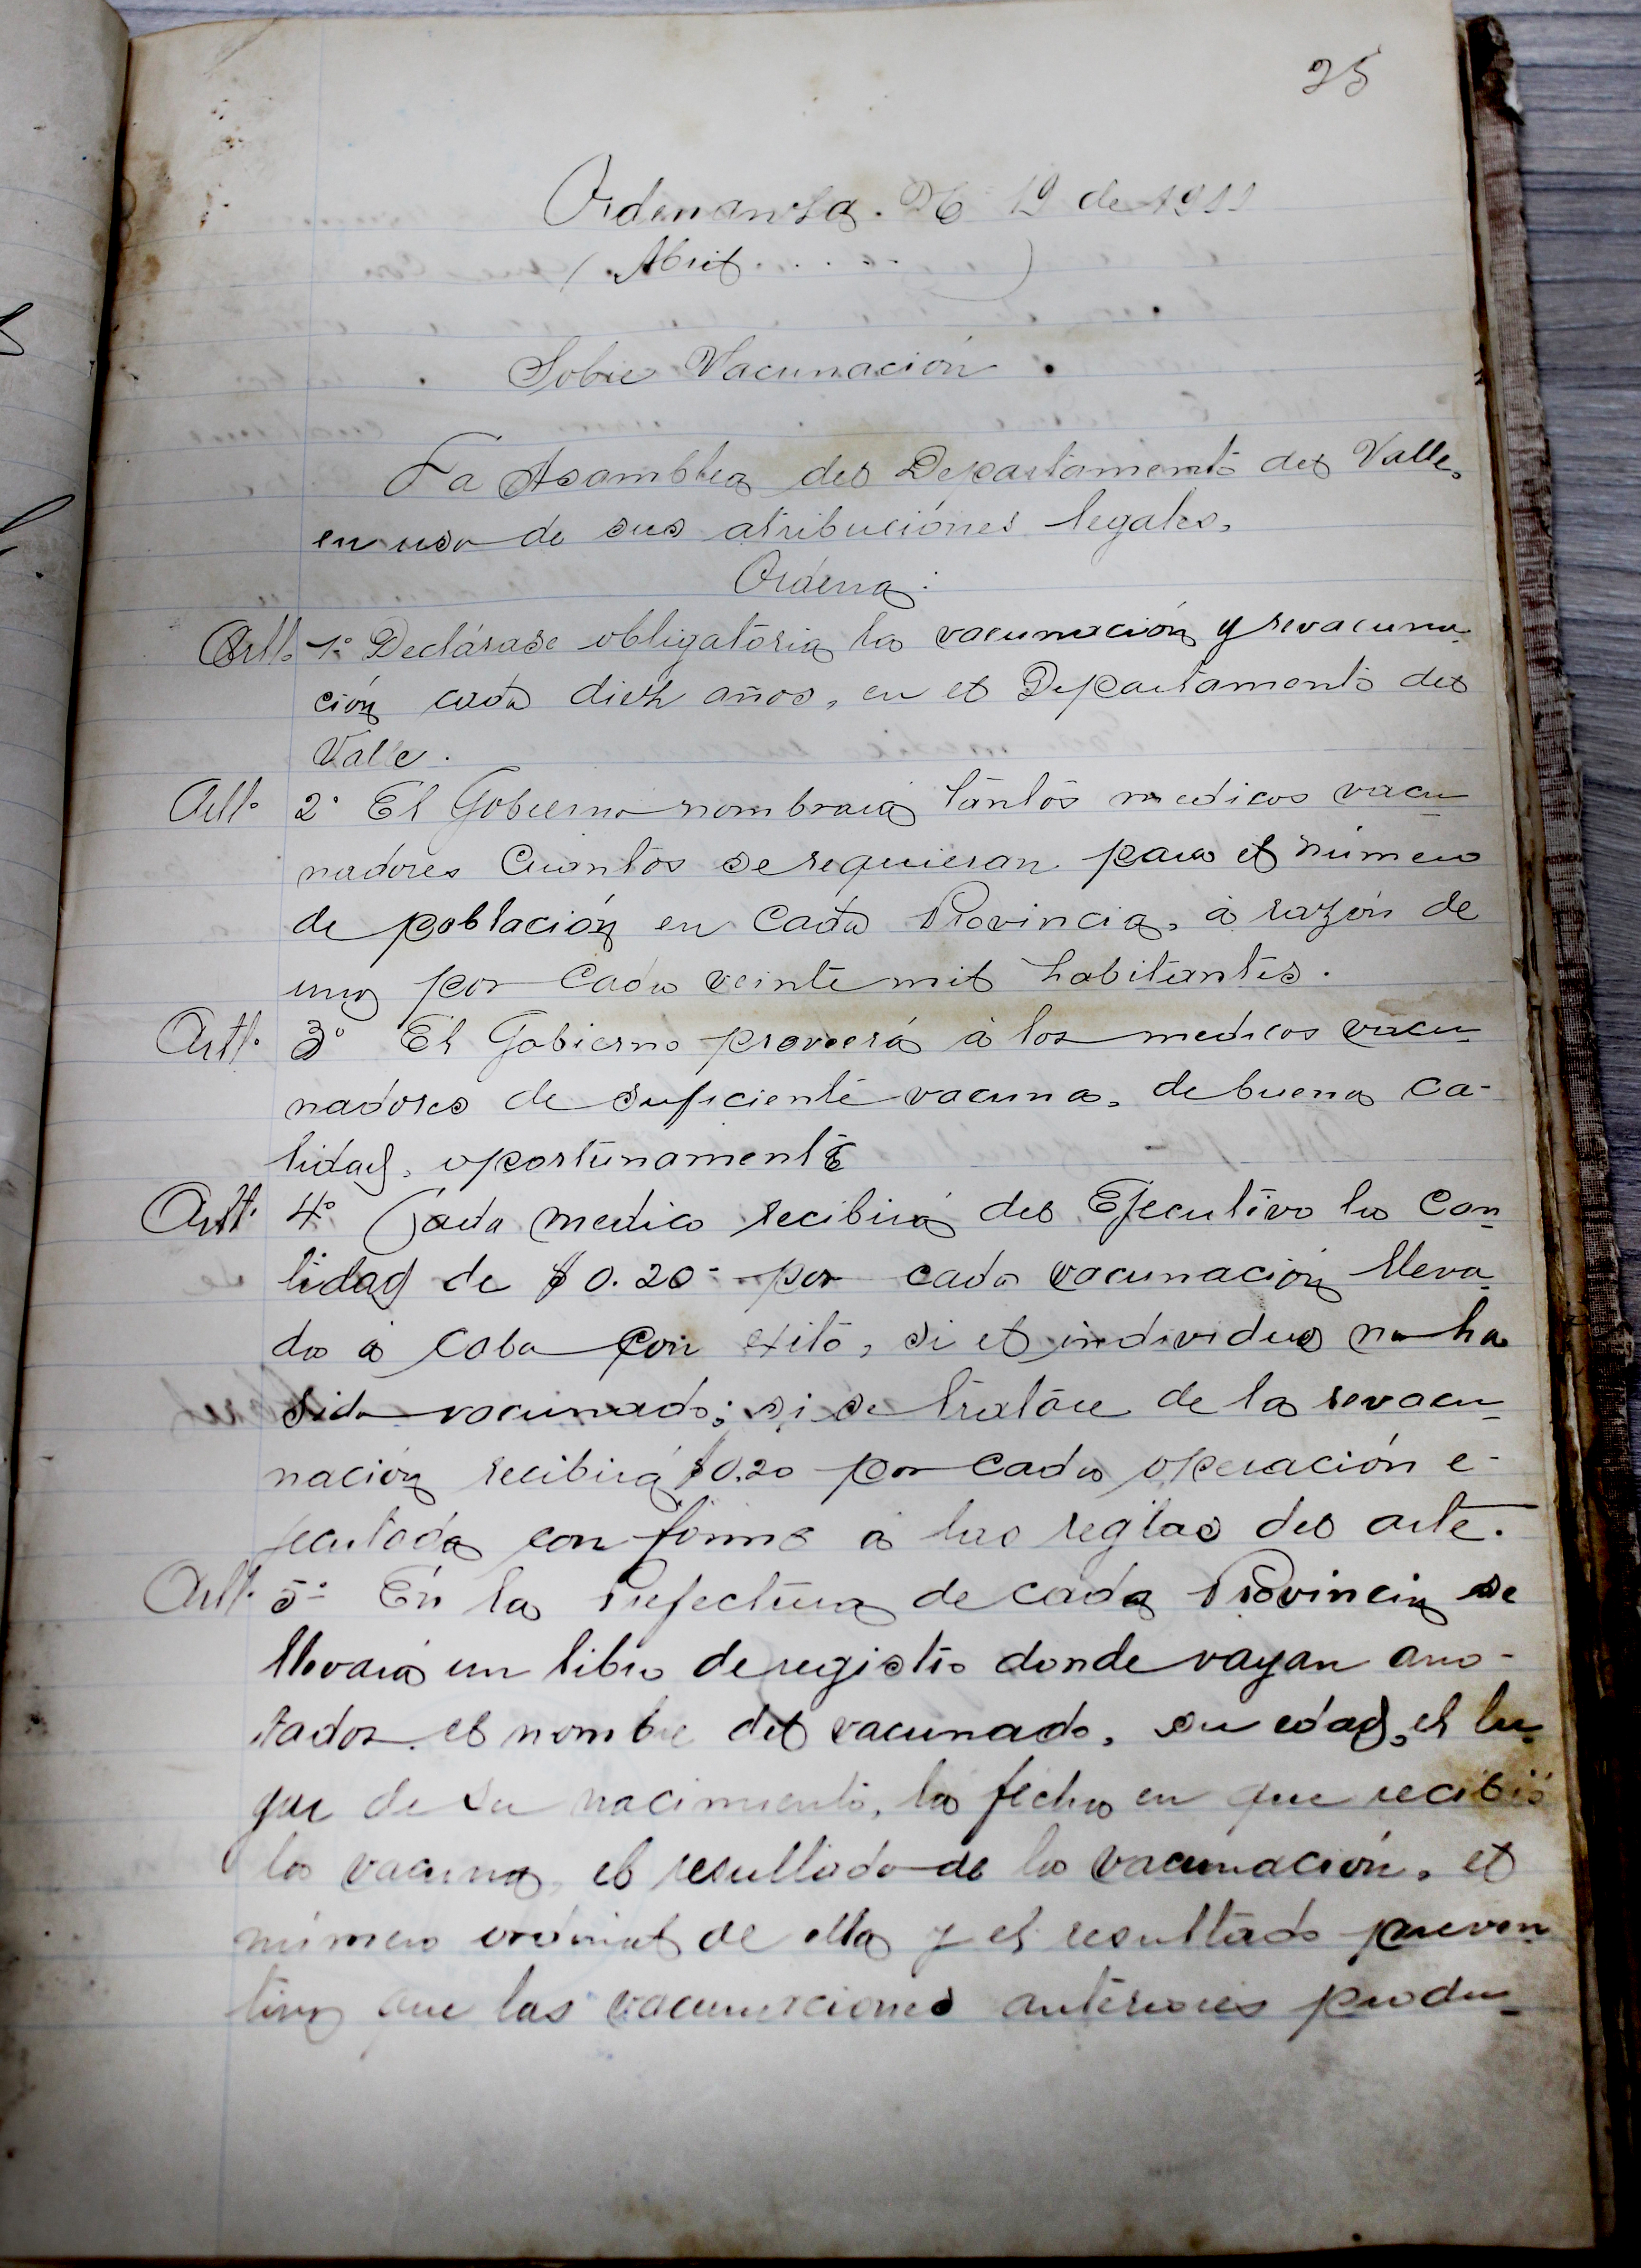 25
Ordenanza. Nº 19 de 1911
(Abril . . . . . )
Sobre Vacunación
La Asamblea del Departamento del Valle,
en uso de sus atribuciónes legales,
Ordena:
Artl. 1º Declárase obligatoria la vacunación y revacuna-
ción cada diez años, en el Departamento del
Valle.
Artl. 2º El Gobierno nombrará tantos medicos vacu-
nadores cuantos se requieran para el número
de población en cada Provincia, á razón de
uno por cada veinte mil habitantes.
Artl. 3º El Gobierno proveerá á los medicos vacu-
nadores de suficiente vacuna, de buena ca-
lidad, oportunamente
Artl. 4º Cada medico recibirá del Ejecutivo la can-
tidad de $0.20 por cada vacunación lleva-
da á cabo con exito, si el individuo no ha
sido vacunado; si se tratáre de la revacu-
nación recibirá $0.20 por cada operación e-
jecutada conforme á las reglas del arte.
Artl. 5º En la Prefectura de cada Provincia se
llevará un libro de registro donde vayan ano-
tados el nombre del vacunado, su edad, el lu-
gar de su nacimiento, la fecha en que recibió
la vacuna, el resultado de la vacunación, el
número ordinal de ella y el resultado preven-
tivo que las vacunaciones anteriores produ-